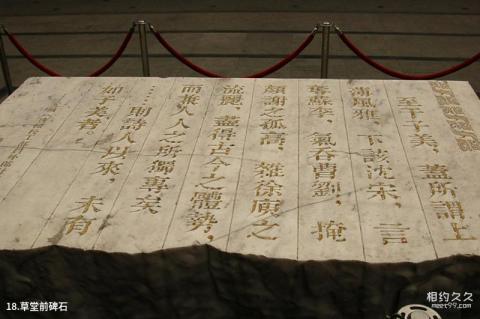 至于子美，蓋所謂上
薄風雅，下該沈宋，言
奪蘇李，氣吞曹劉，掩
顏謝之孤高，雜徐庾之
流麗，盡得古今之體勢，
而兼人人之所獨專矣
……則詩人以來，未有
如子美者。
18.草堂前碑石
相约久久
meet99.com